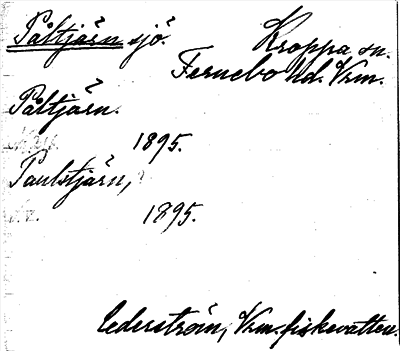 Påltjärn sjö.
Kroppa sn.
Fernebo hd. Vrm.
Påltjärn.
1895.
Paulstjärn,
1895.
Cederström, Vrm. fiskevatten.